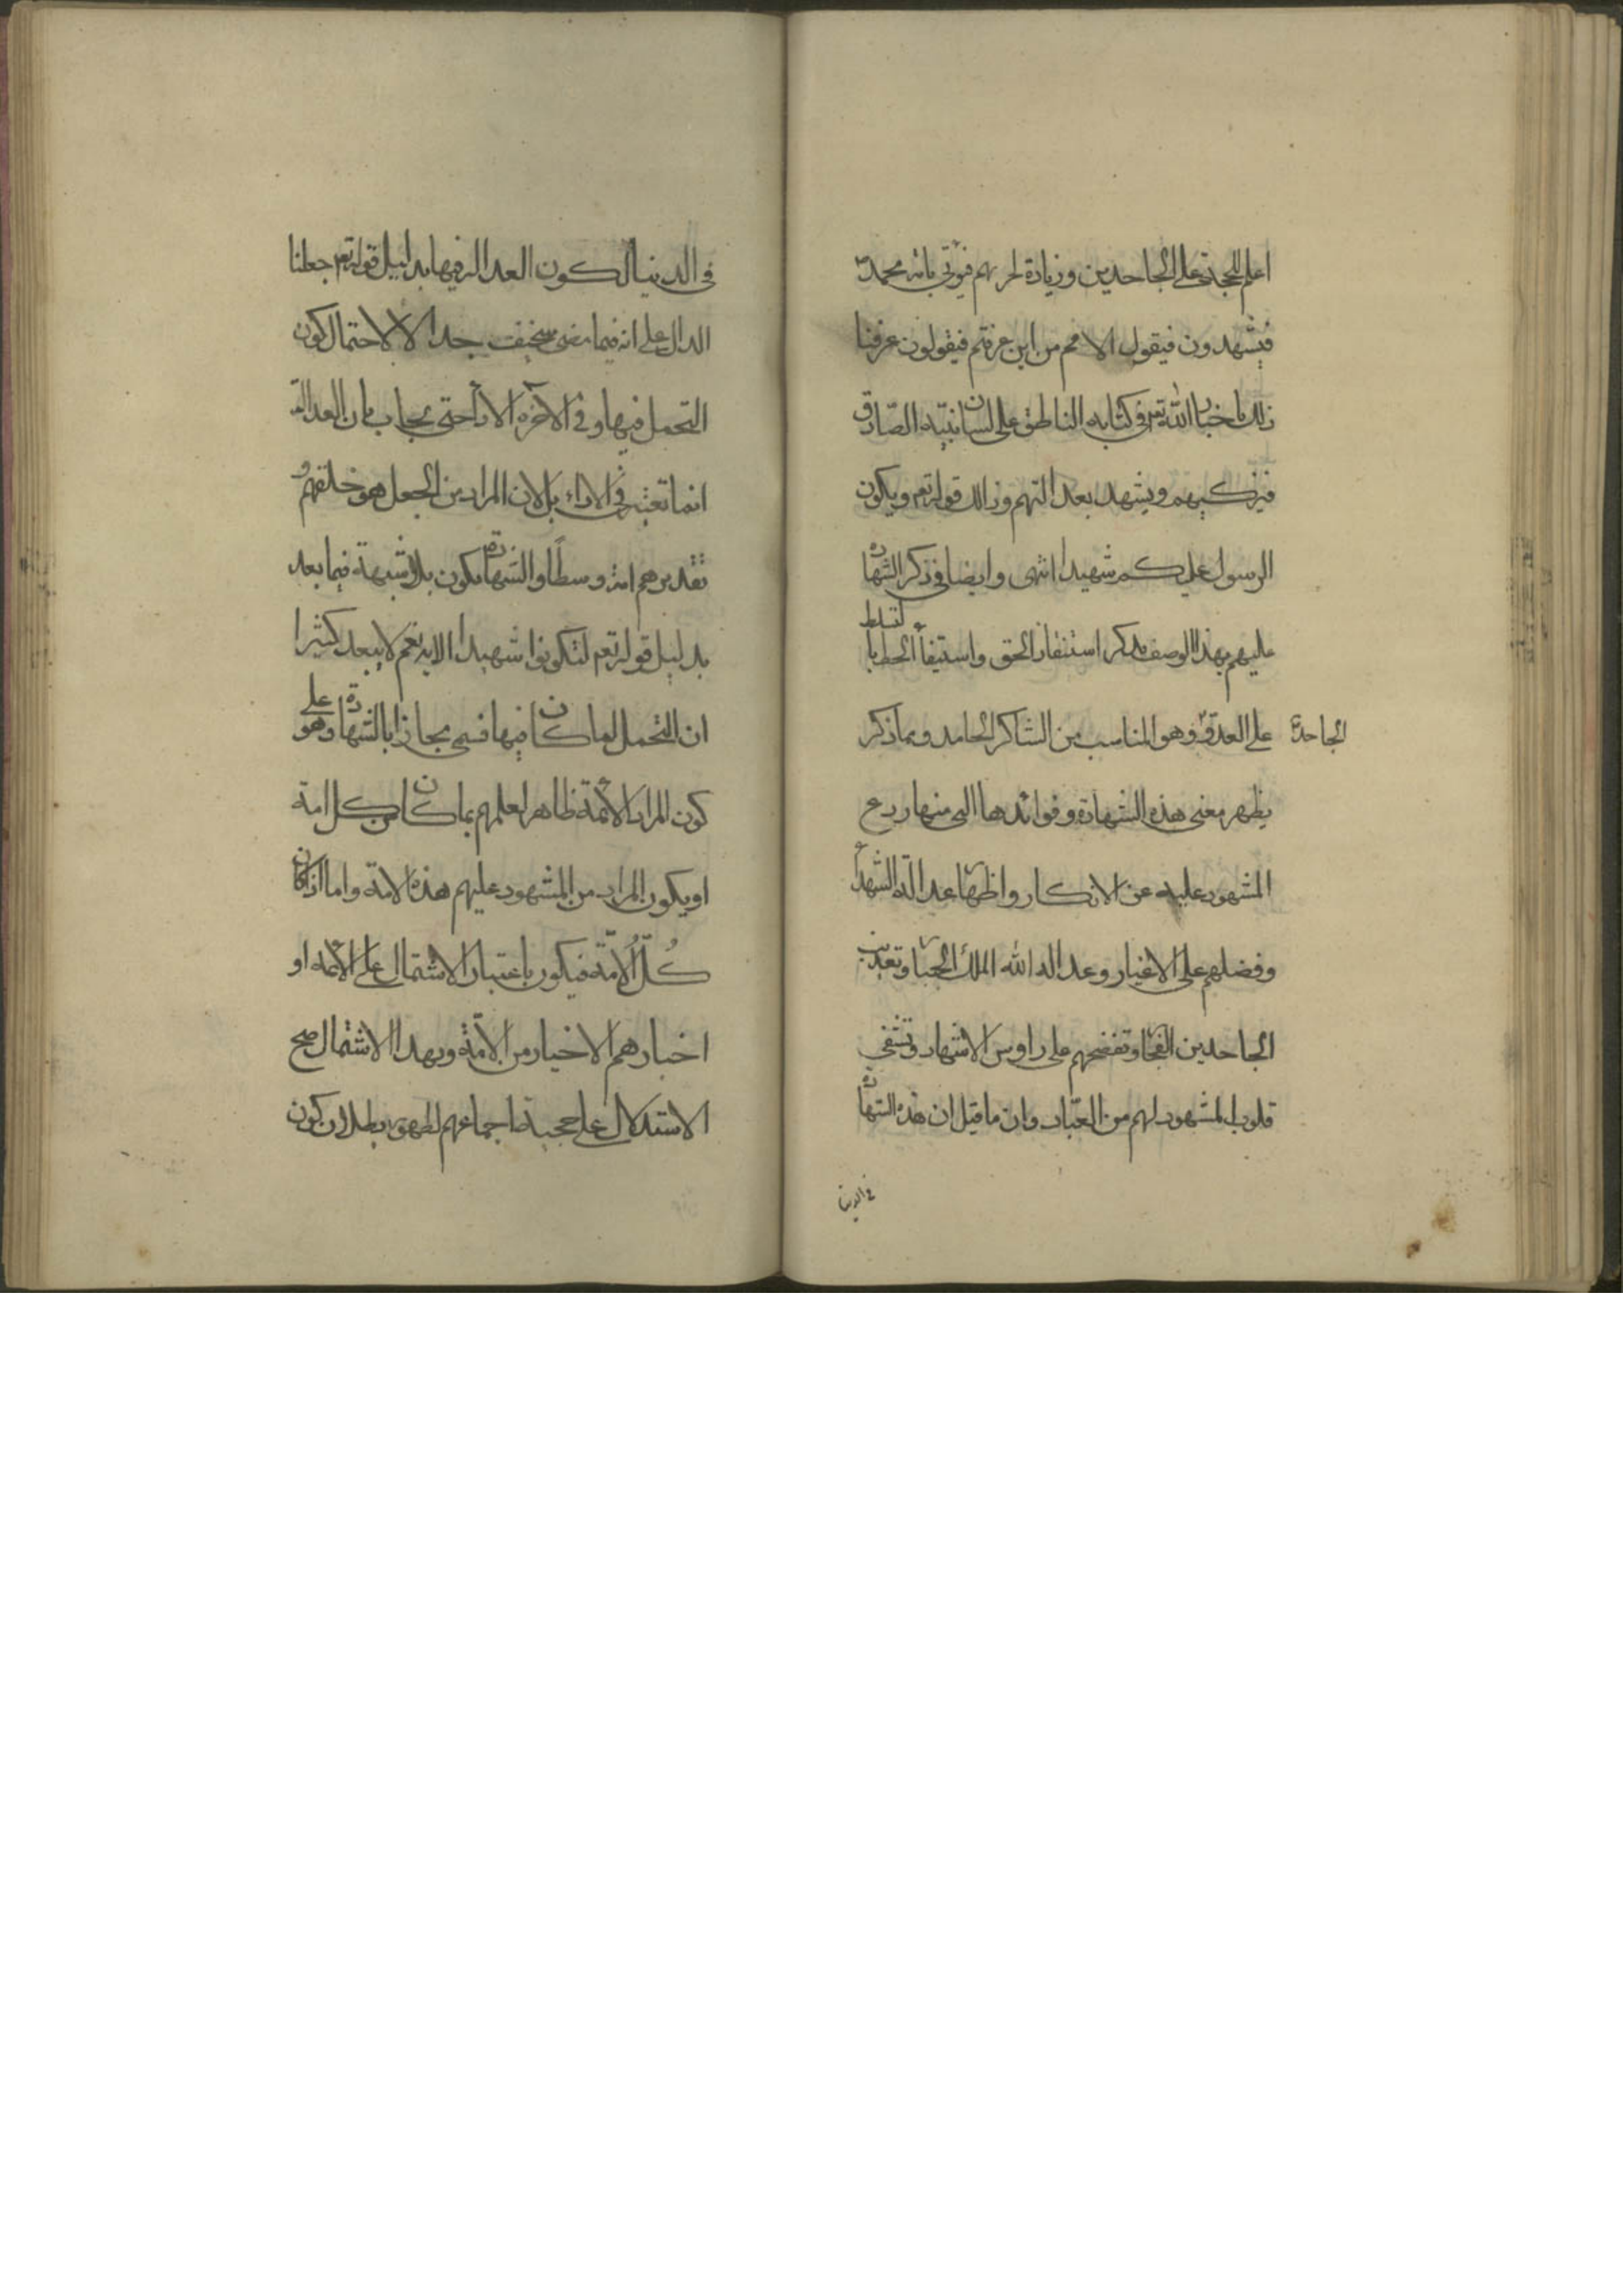 اعلم للحجة على الجاحدين وزيادة لحزنهم فيؤتى بامة محمد ص
فيشهدون فيقول الامم من اين عرفتم فيقولون عرفنا
ذلك باخبار الله تعم في كتابه الناطق على لسان نبيه الصادق
فيزكيهم ويشهد بعدالتهم وذلك قوله تعم ويكون
الرسول عليكم شهيدا انتهى وايضا في ذكر الشهادة
عليهم بهذا الوصف بذكر استنقاذ الحق واستيفاء الخطايا لتسلط
على العدو وهو المناسب من الشاكر الحامد ومما ذكر
الجاحد
يظهر معنى هذه الشهادة وفوائدها التي منها ردع
المشهود عليه عن الانكار واظهار عدالة الشهداء
وفضلهم على الاغيار وعدالة الله الملك الجبار وتعذيب
الجاحدين الفجار وتفضحهم على راوس الاشهاد وتشفي
قلوب المشهود لهم من العباد وان ما قيل ان هذه الشهادة
في الدنيا
في الدنيا لكون العدالة فيها بدليل قوله تعم جعلنا
الدال على انه فيما مضى سخيف جدا لا لاحتمال كون
التحمل فيها وفي الآخرة الاداء حتى يجاب بان العدالة
انما تعتبر في الاداء بل لان المراد من الجعل هو خلقهم و
تقديرهم امة وسطا والشهادة يكون بلا شبهة فيما بعد
بدليل قوله تعم لتكونوا شهداء الاية نعم لا يبعد كثيرا
ان التحمل لما كان فيها فسمى مجازا بالشهادة وهو على
كون المراد الائمة ظاهر لعلمهم بما كان من كل امة
او يكون المراد من المشهود عليهم هذه الامة واما اذا كان
كل الامة فيكون باعتبار الاشتمال على الائمة او
اخبارهم الاخيار من الامة وبهذا الاشتمال صح
الاستدلال على حجية اجماعهم لظهور بطلان كون